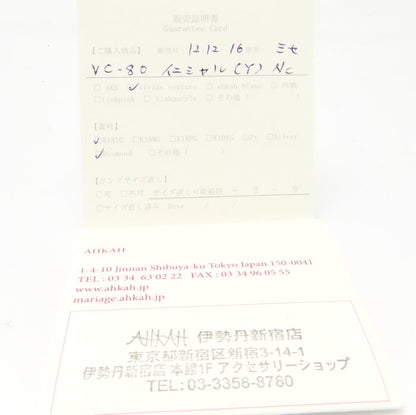 販売証明書
Guarantee Card
【ご購入商品】 販売日: 12 12 16 ミセ
VC-80 イニシャル(Y) Nc
□AKS ✓vivian couture □ahkah blanc □
□tinkpink □tinkpurple □その他 ( )
【素材】
✓K18YG □K18WG □K18PG □K10YG □Pt □Silver
✓Diamond □その他 ( )
【リングサイズ直し】
□可 □不可 サイズ直し可能範囲 + 号 − 号
□サイズ直し済み Date / /
AHKAH
1-4-10 Jinnan Shibuya-ku Tokyo Japan 150-0041
TEL : 03 34 63 02 22 FAX : 03 34 96 05 55
www.ahkah.jp
mariage.ahkah.jp
AHKAH 伊勢丹新宿店
東京都新宿区新宿3-14-1
伊勢丹新宿店 本館1F アクセサリーショップ
TEL:03-3358-8780